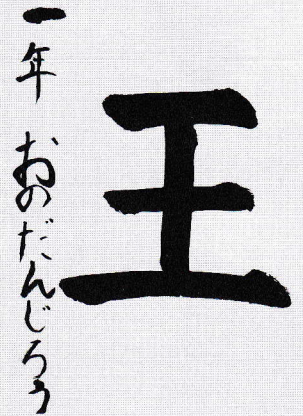 王
一年 おのだんじろう